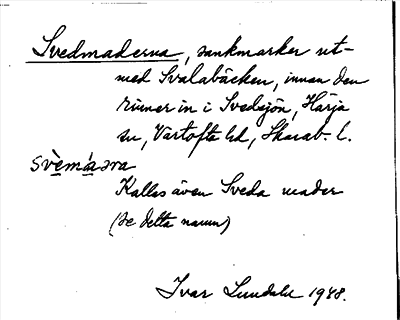 Svedmaderna, sankmarker ut-
med Svalabäcken, innan den
rinner in i Svedsjön, Härja
sn, Vartofta hd, Skarab. l.
svèmáɔra
Kallas även Sveda mader
(se detta namn)
Ivar Lundahl 1948.